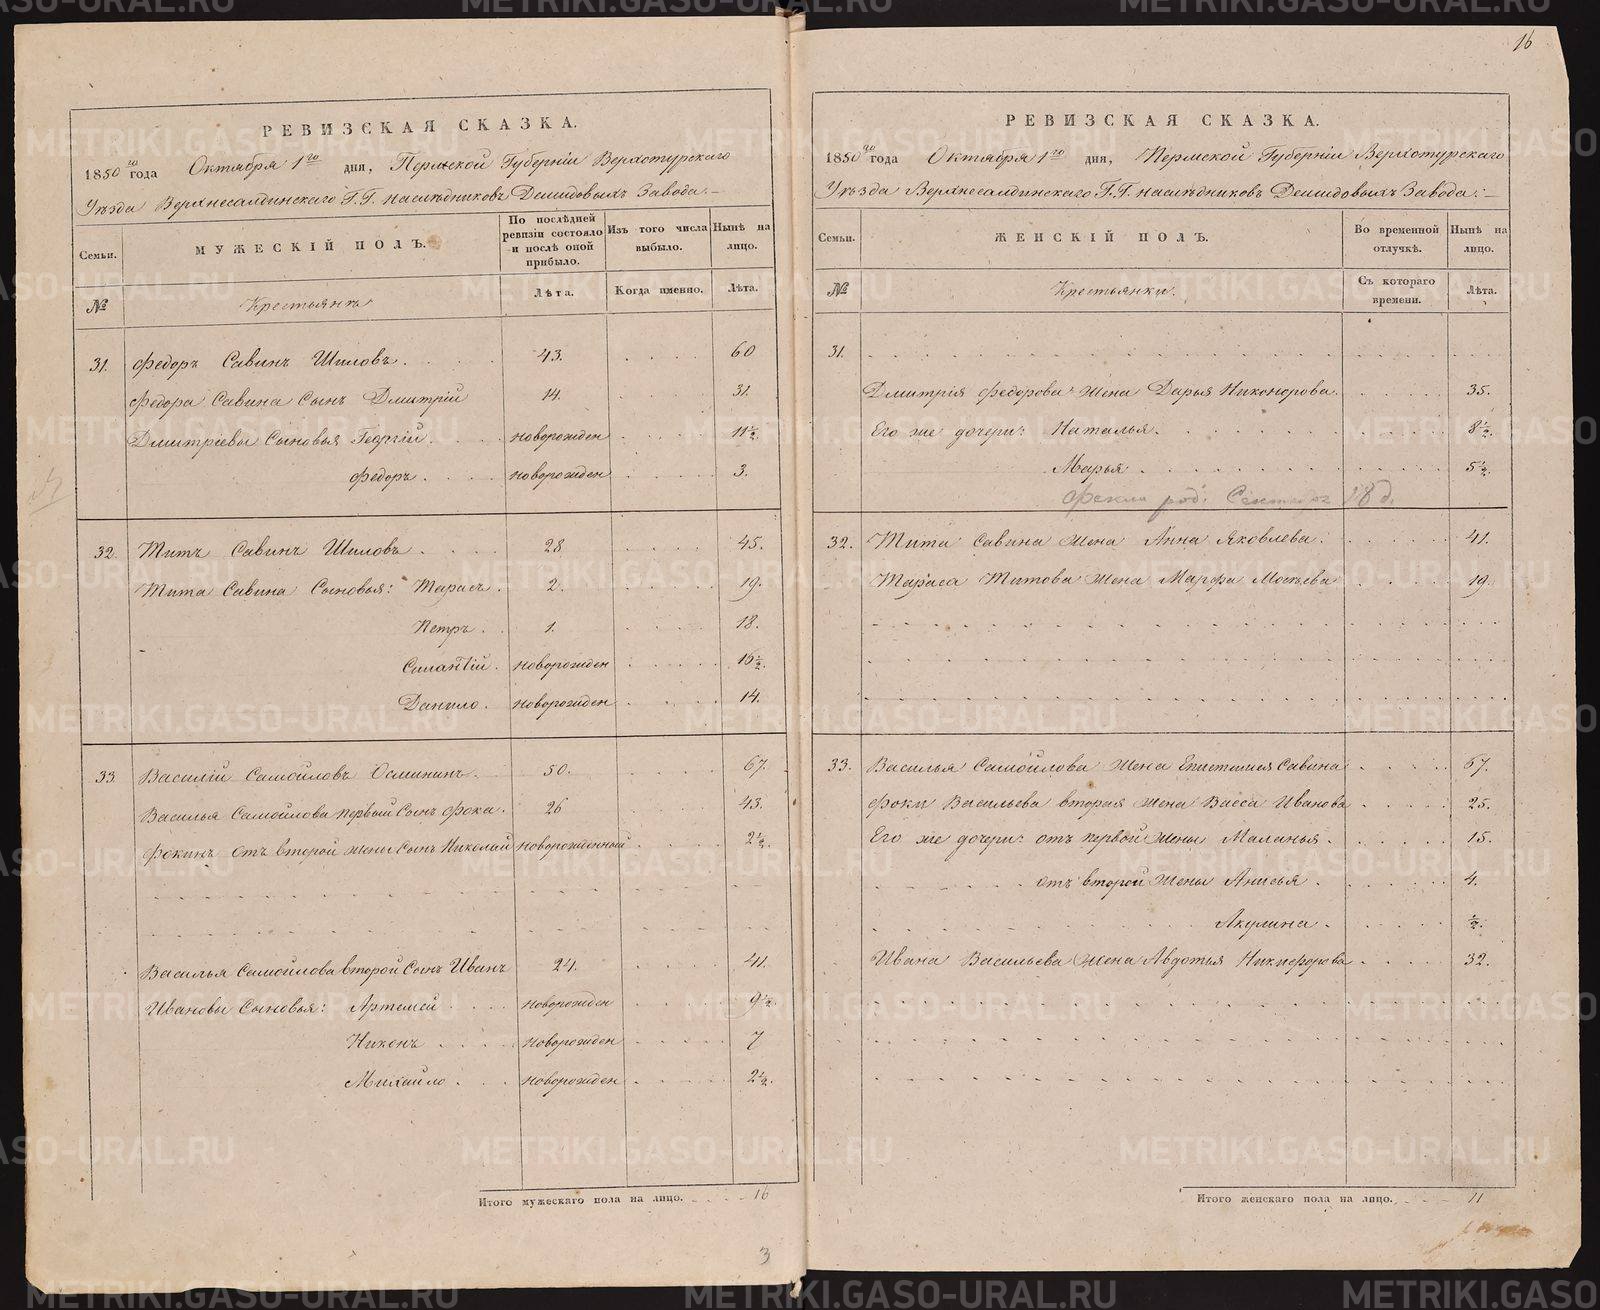 16
РЕВИЗСКАЯ СКАЗКА.
1850го года Октября 1го дня, Пермской Губерніи Верхотурскаго
Уѣзда Верхнесалдинскаго Г.Г. наслѣдниковъ Демидовыхъ Завода.
Семьи.
МУЖЕСКІЙ ПОЛЪ.
По послѣдней ревизіи состояло и послѣ оной прибыло.
Изъ того числа выбыло.
Нынѣ на лицо.
№
Крестьянъ
Лѣта.
Когда именно.
Лѣта.
31. Федоръ Савинъ Шиловъ. 43. 60
Федора Савина Сынъ Дмитрій 14. 31.
Дмитріевы Сыновья Георгій. новорожден 11½.
Федоръ. новорожден 3.
32. Титъ Савинъ Шиловъ 28 45.
Тита Савина Сыновья: Тарасъ. 2. 19.
Петръ. 1. 18.
Силантій. новорожден 16½.
Данило. новорожден 14.
33. Василій Самойловъ Осминин. 50. 67.
Василья Самойлова первый Сынъ Фока. 26 43.
Фокинъ отъ второй жены Сынъ Николай новорожденный 2½.
Василья Самойлова второй Сынъ Иванъ 24. 41.
Ивановы Сыновья: Артемей новорожден 9½.
Никонъ новорожден 7
Михайло. новорожден 2½.
Итого мужескаго пола на лицо. 16
3
РЕВИЗСКАЯ СКАЗКА.
1850го года Октября 1го дня, Пермской Губерніи Верхотурскаго
Уѣзда Верхнесалдинскаго Г.Г. наслѣдниковъ Демидовыхъ Завода:
Семьи.
ЖЕНСКІЙ ПОЛЪ.
Во временной отлучкѣ.
Нынѣ на лицо.
№
Крестьянки.
Съ котораго времени.
Лѣта.
31.
Дмитрія Федорова жена Дарья Никонорова. 35.
Его же дочери: Наталья. 8½.
Марья 5½.
Фекла род. Сентября 18 д.
32. Тита Савина жена Анна Яковлева. 41.
Тараса Титова жена Марфа Мосѣева 19.
33. Василья Самойлова жена Епистимея Савина 67.
Фоки Васильева вторая жена Васса Иванова 25.
Его же дочери: отъ первой жены Маланья. 15.
отъ второй жены Анисья. 4.
Акулина. ½.
Ивана Васильева жена Авдотья Никифорова 32.
Итого женскаго пола на лицо. 11
METRIKI.GASO-URAL.RU